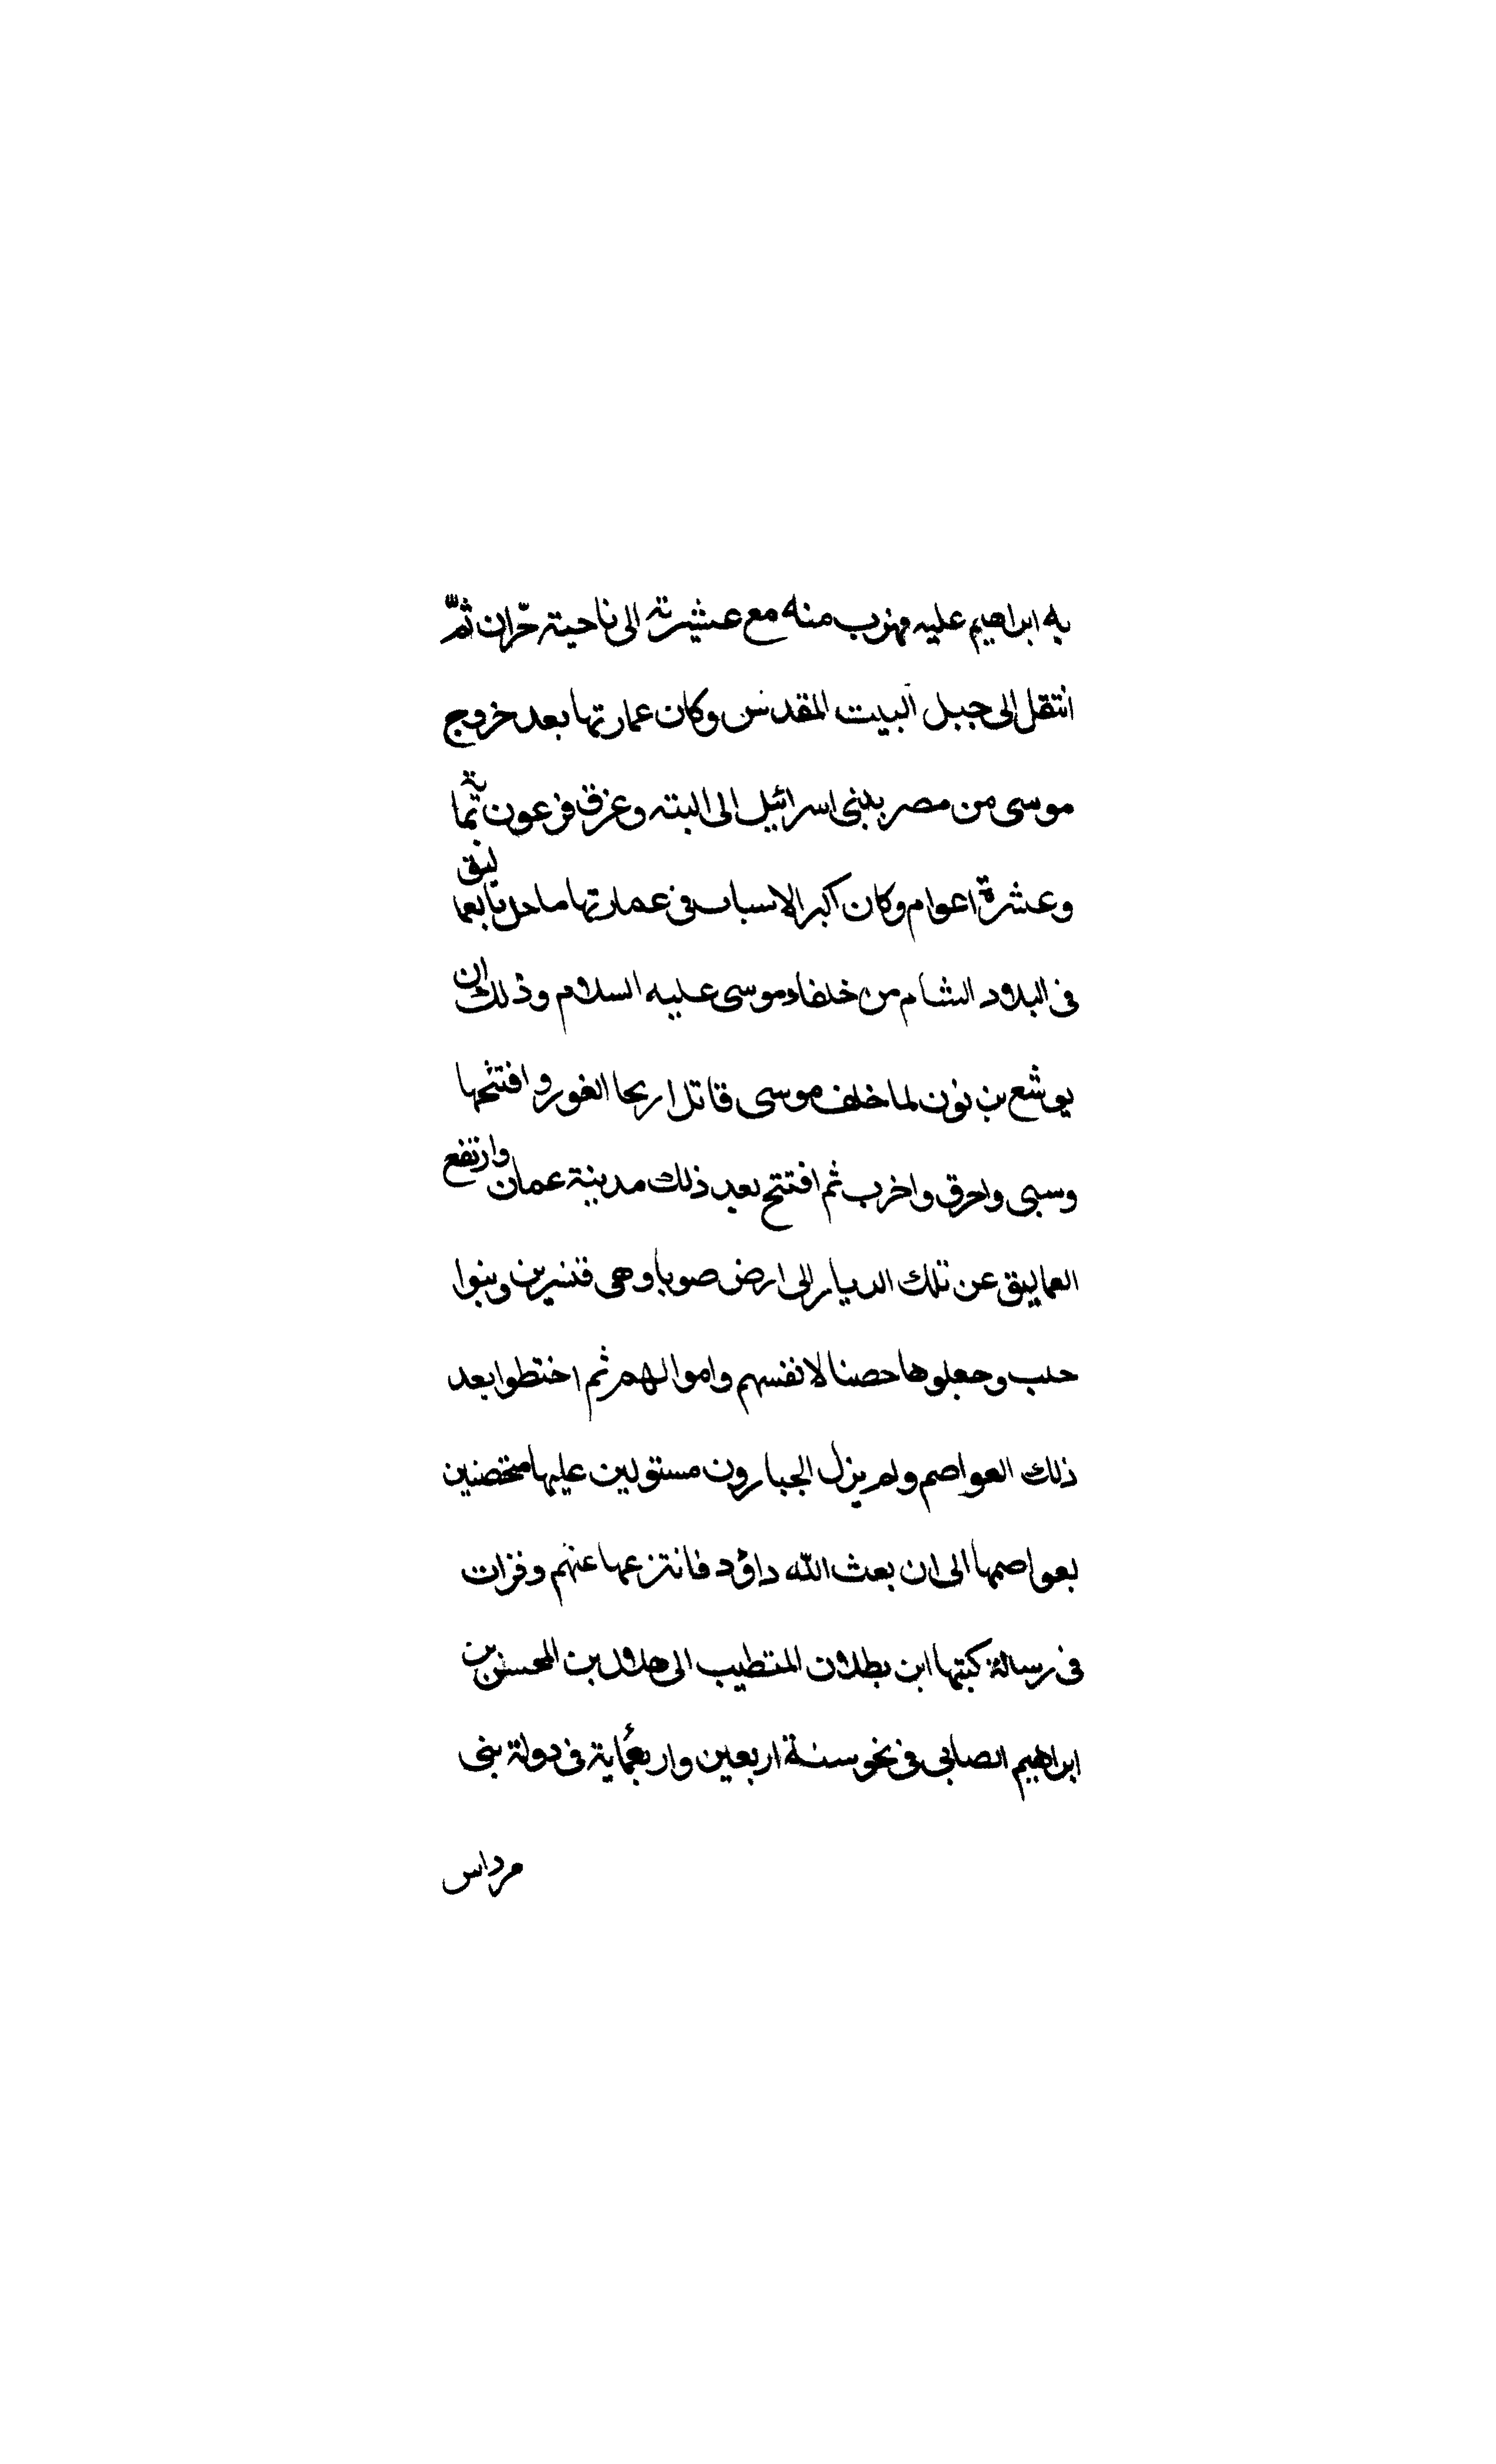 به ابراهيم عليه فهرب منه مع عشيرته الى ناحيته حرّان ثمّ
انتقل الى جبل البيت المقدس وكان عمارتها بعد خروج
موسى من مصر ببنى اسرائيل الى البته وغرق فرعون ثما
وعشرة اعوام وكان اكبر الاسباب فى عمارتها ما حل بالعما
ليق
فى البلاد الشام من خلفاء موسى عليه السلام وذلك ان
يوشع بن نون لما خلف موسى قاتل اريحا الغور وافتتحها
وسبى واحرق واخرب ثم افتتح بعد ذلك مدينة عمان وارتفع
العماليق عن تلك الديار الى ارض صوبا وهى قنسرين وبنوا
حلب وجعلوها حصنا لانفسهم واموالهم ثم اختطوا بعد
ذلك العواصم ولم يزل الجبارون مستولين عليها متحصنين
بعواصمها الى ان بعث الله داؤد فانتزعها عنهم وقرات
فى رسالة كتبها ابن بطلان المتطيب الى هلال بن المحسن بن
ابراهيم الصابى فى نحو سنة اربعين واربعماية فى دولة بنى
مرداس